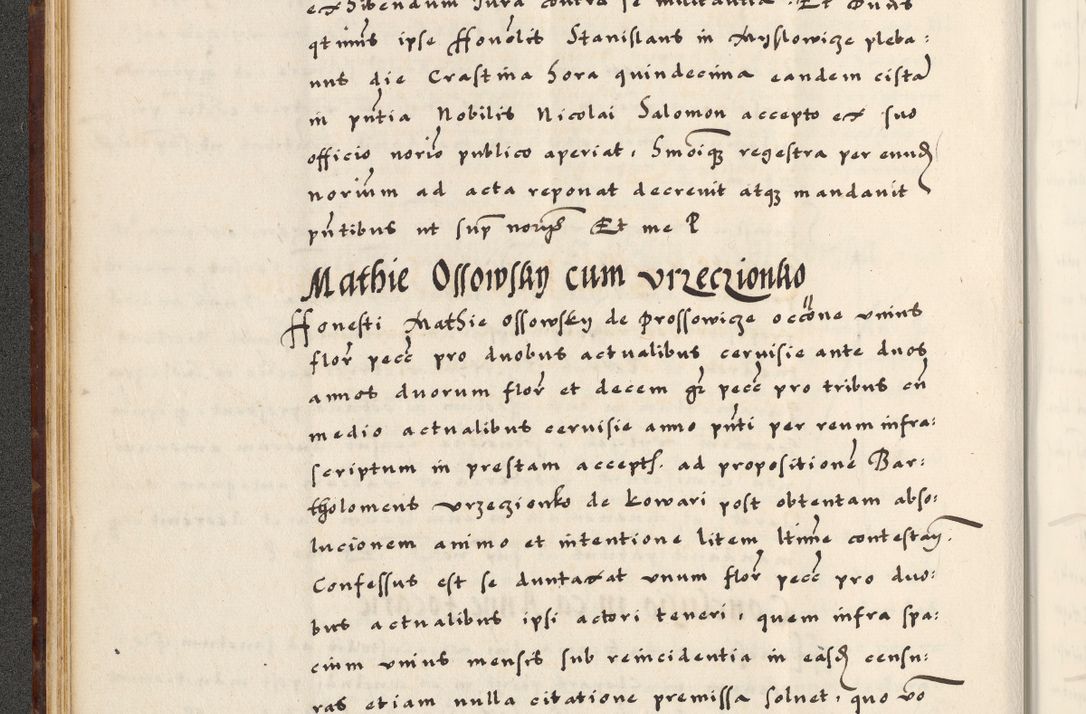 exhibendum iura contra se militantia. Et dnus
qtimis ipse Honolis Stanislaus in Myslowicze pleba:
nus die Crastina hora quindecima eandem cista
in pntia Nobilis Nicolai Salomon accepto ex suo
officio norio publico aperiat, Smoiq regestra per eund
norium ad acta reponat decrevit atq mandavit
pntibus ut sup noris Et me P
Mathie Ossowsky cum vrzeczionko
Honesti Mathie Ossowsky de Prossowicze occone vnius
flor pecc pro duobus actualibus cervisie ante duos
annos duorum flor et decem gr pecc pro tribus cu
medio actualibus cervisie anno pnti per reum infra:
scriptum in prestam accept. ad propositione Bar:
tholomeus vrzeczionko de Kowari post obtentam abso:
lucionem animo et intentione litem ltime contestan.
Confessus est se duntaxat vnum flor pecc pro duo:
bus actualibus ipsi actori teneri, quem infra spa:
cium vnius mensis sub reincidentia in easd censu:
ras etiam nulla citatione premissa solvet, quo vo